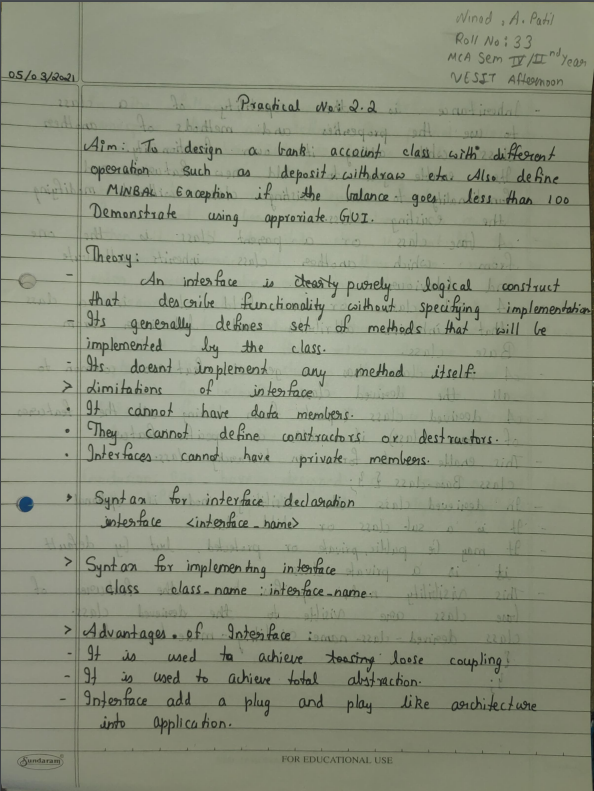 Vinod . A. Patil
Roll No: 33
MCA Sem IV/IInd Year
VESIT Afternoon
05/03/2021
Practical No: 2.2
Aim: To design a bank account class with different
operation such as deposit, withdraw etc. Also define
MINBAL Exception if the balance goes less than 100
Demonstrate using approriate GUI.
Theory:
- An interface is purely logical construct
that describe functionality without specifying implementation
- Its generally defines set of methods that will be
implemented by the class.
- Its doesnt implement any method itself.
> Limitations of interface
• It cannot have data members.
• They cannot define constractors or destractors.
• Interfaces cannot have private members.
> Syntax for interface declaration
interface <interface_name>
> Syntax for implementing interface
class class_name : interface_name.
> Advantages of Interface :
- It is used to achieve loose coupling.
- It is used to achieve total abstraction.
- Interface add a plug and play like architecture
into application.
Sundaram
FOR EDUCATIONAL USE